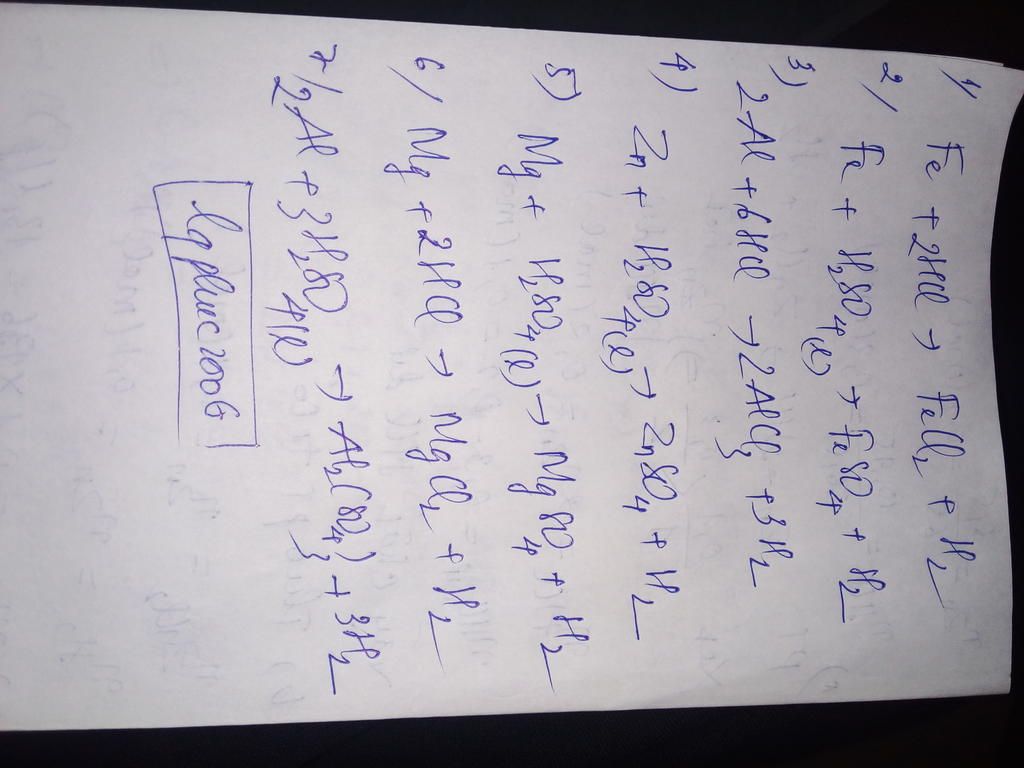 1) Fe + 2HCl → FeCl₂ + H₂
2) Fe + H₂SO₄(l) → FeSO₄ + H₂
3) 2Al + 6HCl → 2AlCl₃ + 3H₂
4) Zn + H₂SO₄(l) → ZnSO₄ + H₂
5) Mg + H₂SO₄(l) → MgSO₄ + H₂
6) Mg + 2HCl → MgCl₂ + H₂
7) 2Al + 3H₂SO₄(l) → Al₂(SO₄)₃ + 3H₂